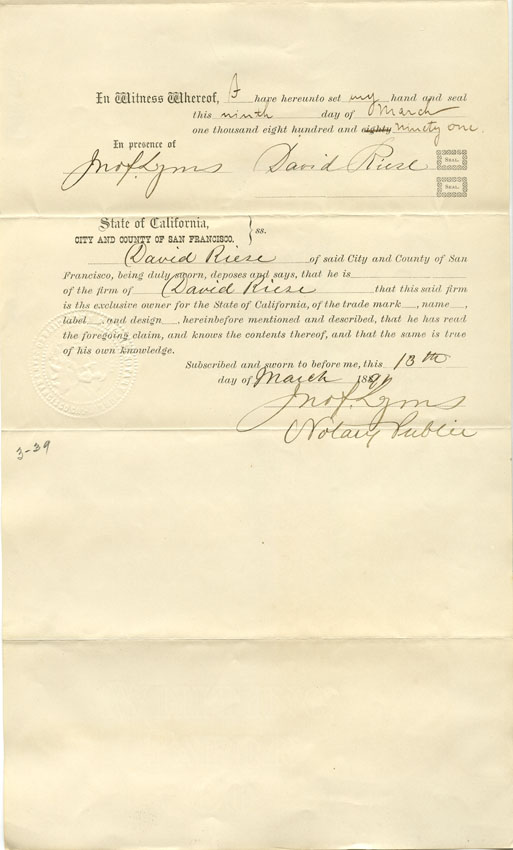 In Witness Whereof, I have hereunto set my hand and seal
this ninth day of March
one thousand eight hundred and eighty ninety one.
In presence of
Jno. F. Lyons David Riese SEAL
SEAL
State of California, } ss.
CITY AND COUNTY OF SAN FRANCISCO.
David Riese of said City and County of San
Francisco, being duly sworn, deposes and says, that he is
of the firm of David Riese that this said firm
is ths exclusive owner for the State of California, of the trade mark , name ,
label , and design , hereinbefore mentioned and described, that he has read
the foregoing claim, and knows the contents thereof, and that the same is true
of his own knowledge.
Subscribed and sworn to before me, this 13th
day of March 1891
Jno. F. Lyons
Notary Public
3-39